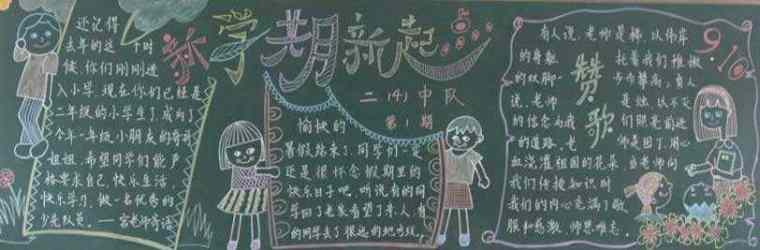 新学期新起点
还记得
去年的这个时
候,你们刚刚进
入小学,现在你们已经是
二年级的小学生了,成为了
个年一年级小朋友的哥哥
姐姐,希望同学们能严
格要求自己,快乐生活,
快乐学习,做一名优秀的
少先队员。——宫老师寄语
二(4)中队
第1期
愉快的
暑假结束了,同学们一定
还是很怀念假期里的
快乐日子吧。听说有的同
学回了老家看望了亲人,有
的同学去了很远的地方玩。
9.10
赞歌
有人说,老师是梯,以伟岸
的身躯 托着我们稚嫩
的双脚 步步攀高;有人
说,老师 是烛,以不灭
的信念为我 们照亮前进
的道路,老 师是园丁,用心
血浇灌祖国的花朵。当老师向
我们传授知识时
我们的内心充满了敬
服和感激,师恩难忘。